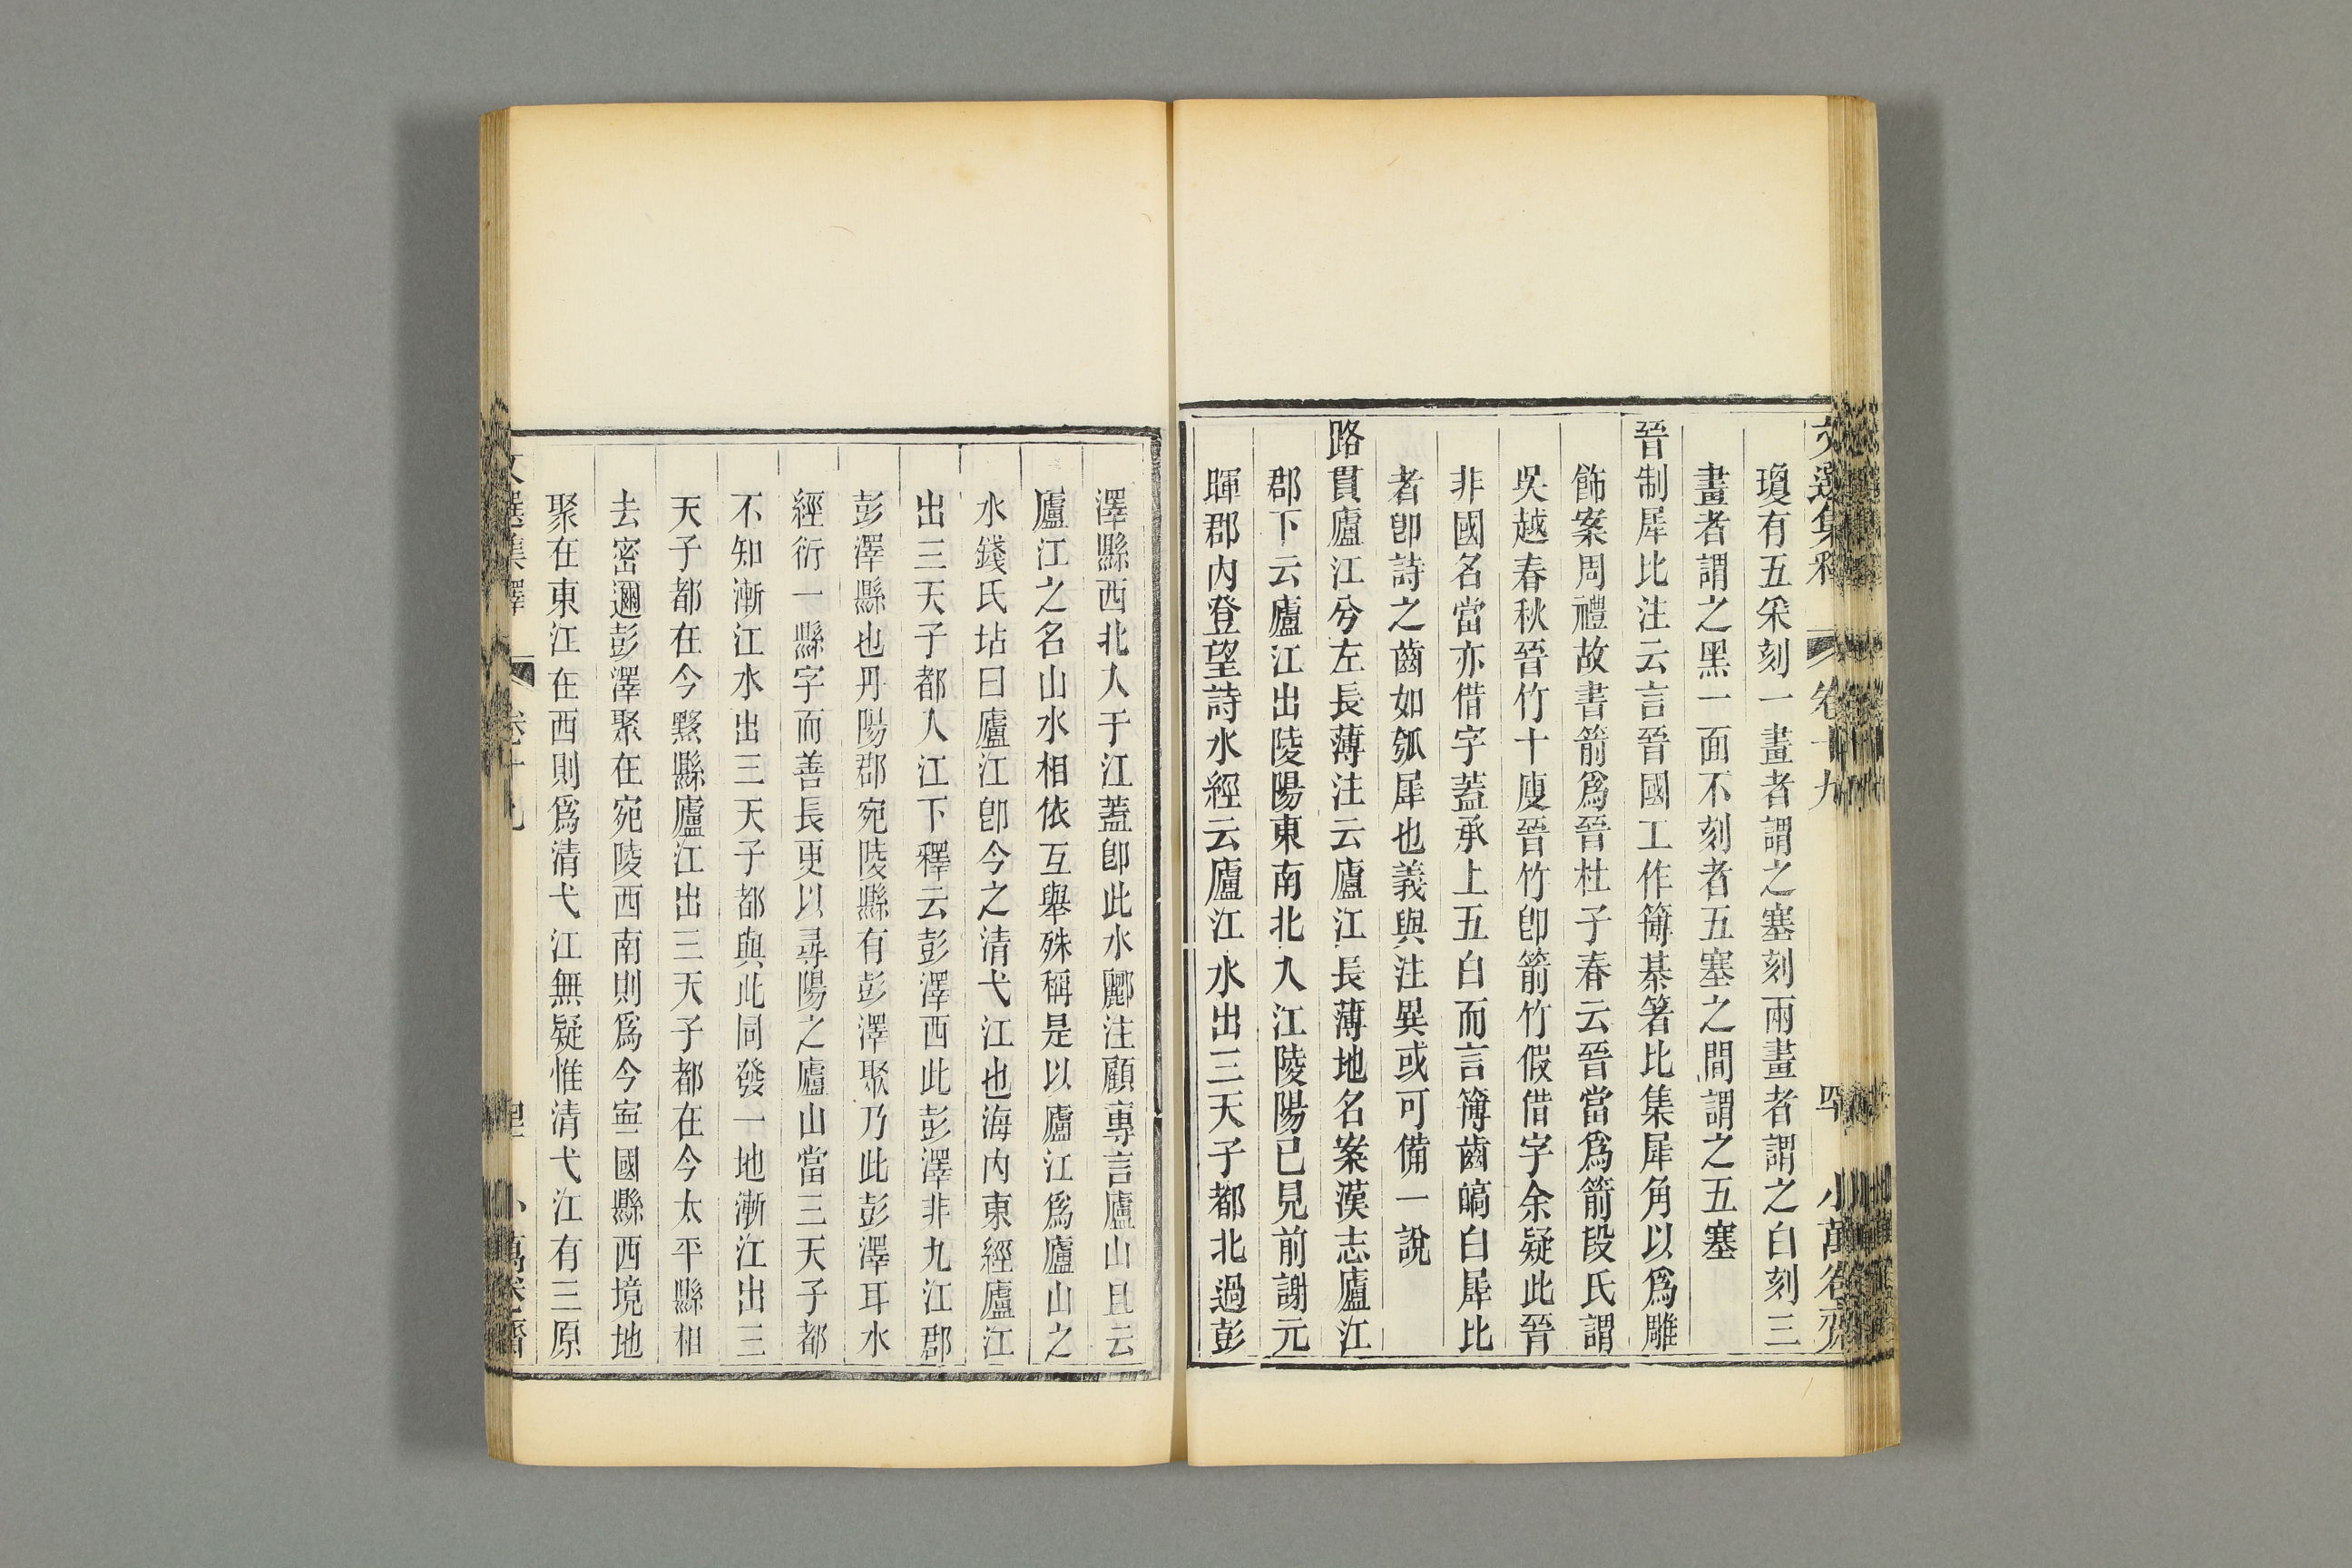 文選集釋 卷十九 小萬卷齋
瓊有五采刻一畫者謂之塞刻兩畫者謂之白刻三
畫者謂之黑一面不刻者五塞之間謂之五塞
晉制犀比注云言晉國工作簿綦箸比集犀角以爲雕
飾案周禮故書箭爲晉杜子春云晉當爲箭段氏謂
吳越春秋晉竹十廋晉竹卽箭竹假借字余疑此晉
非國名當亦借字蓋承上五白而言簿齒皜白犀比
者卽詩之齒如瓠犀也義與注異或可備一說
路貫廬江兮左長薄注云廬江長薄地名案漢志廬江
郡下云廬江出陵陽東南北入江陵陽已見前謝元
暉郡內登望詩水經云廬江水出三天子都北過彭
澤縣西北入于江蓋卽此水酈注顧專言廬山且云
廬江之名山水相依互舉殊稱是以廬江爲廬山之
水錢氏坫曰廬江卽今之清弋江也海內東經廬江
出三天子都入江下釋云彭澤西此彭澤非九江郡
彭澤縣也丹陽郡宛陵縣有彭澤聚乃此彭澤耳水
經衍一縣字而善長更以尋陽之廬山當三天子都
不知漸江水出三天子都與此同發一地漸江出三
天子都在今黟縣廬江出三天子都在今太平縣相
去密邇彭澤聚在宛陵西南則爲今寍國縣西境地
聚在東江在西則爲清弋江無疑惟清弋江有三原
文選集釋 卷十九 小萬卷齋